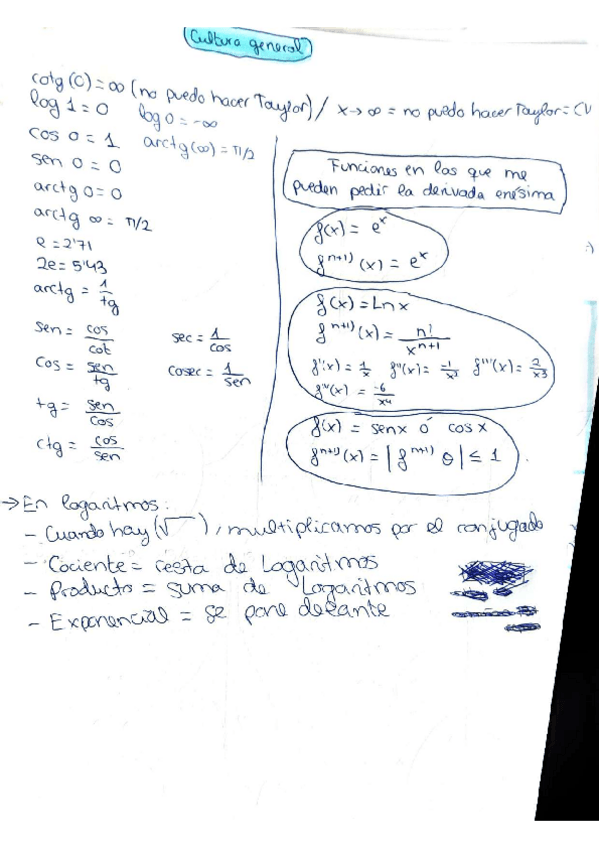 Cultura general
cotg(0) = ∞ (no puedo hacer Taylor) / x→∞ = no puedo hacer Taylor = CV
log 1 = 0
log 0 = -∞
cos 0 = 1
arctg(∞) = π/2
sen 0 = 0
arctg 0 = 0
arctg ∞ = π/2
e = 2'71
2e = 5'43
arctg = 1/tg
sen = cos/cot
sec = 1/cos
cos = sen/tg
cosec = 1/sen
tg = sen/cos
ctg = cos/sen
Funciones en las que me
pueden pedir la derivada enésima
f(x) = eˣ
fⁿ⁺¹⁾(x) = eˣ
f(x) = Ln x
fⁿ⁺¹⁾(x) = n!/xⁿ⁺¹
f'(x) = 1/x f''(x) = -1/x² f'''(x) = 2/x³
f''''(x) = -6/x⁴
f(x) = senx ó cosx
fⁿ⁺¹⁾(x) = |fⁿ⁺¹⁾ θ| ≤ 1
:)
→ En logaritmos:
- Cuando hay (√ ), multiplicamos por el conjugado
- Cociente = resta de Logaritmos
- Producto = suma de Logaritmos
- Exponencial = se pone delante